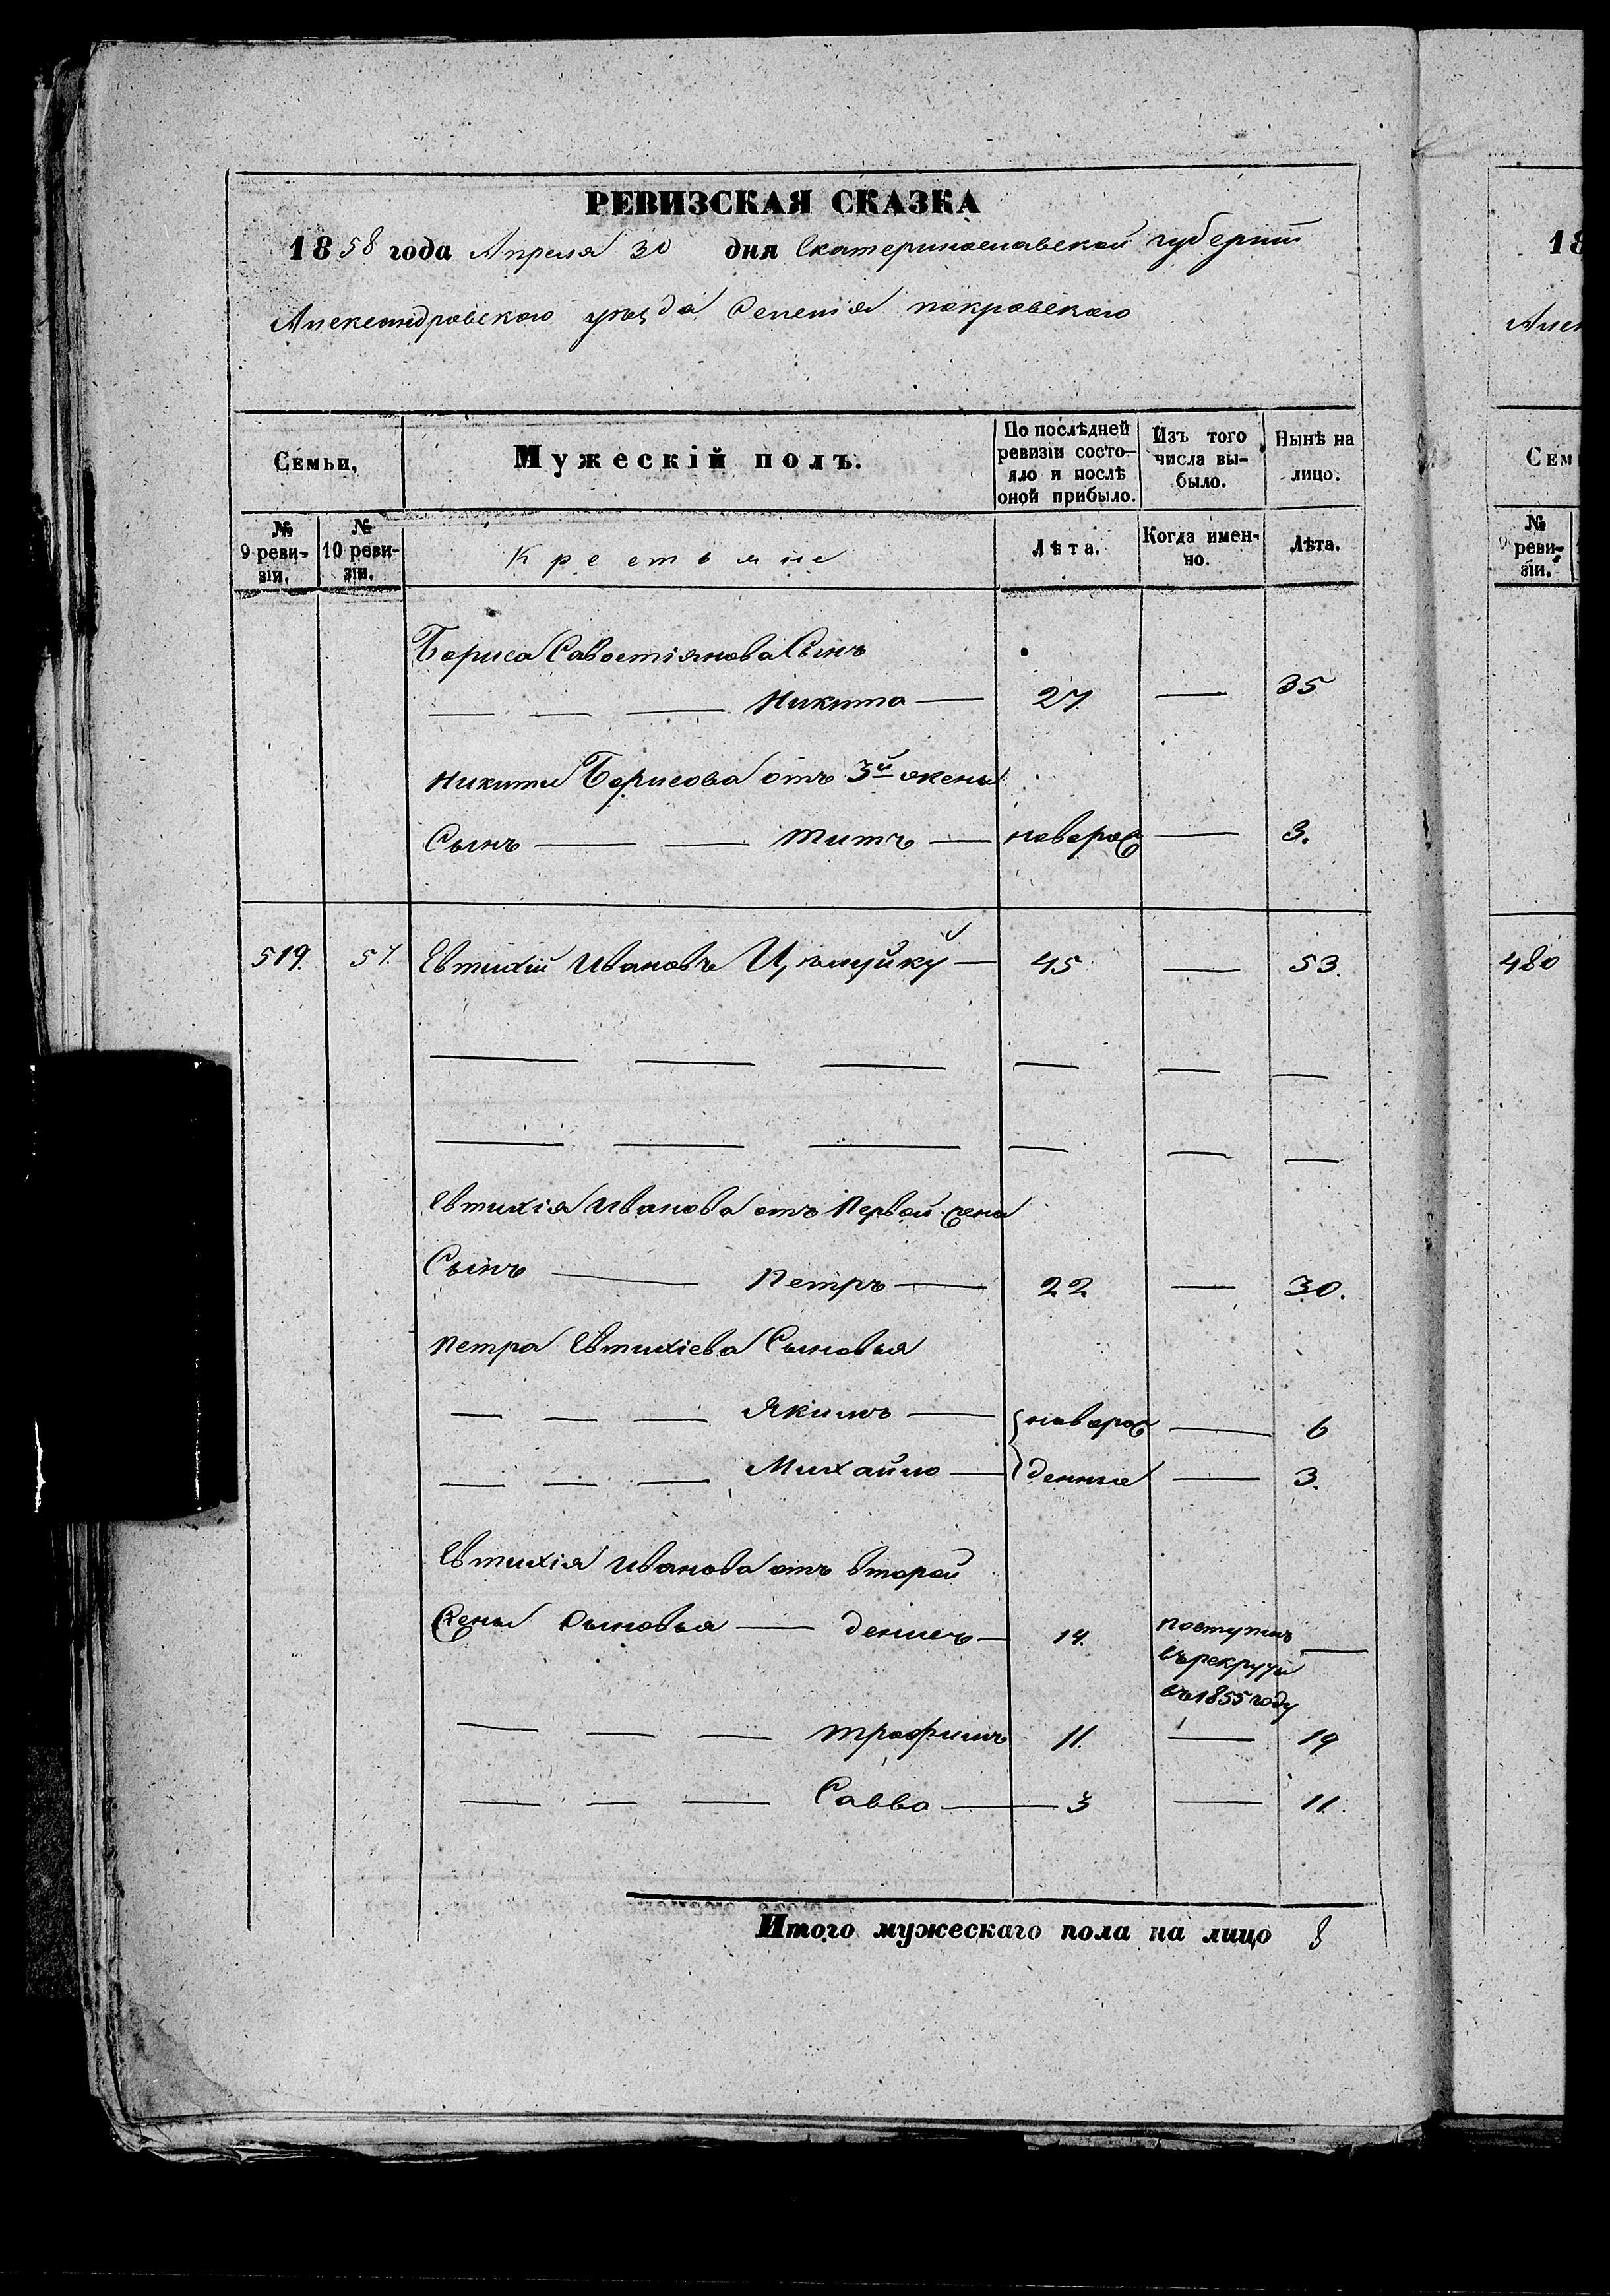 РЕВИЗСКАЯ СКАЗКА
1858 года Апреля 30 дня Екатеринославской губернии
Александровского уѣзда Селенія покровского
Семьи.
Мужескій полъ.
По послѣдней ревизіи состояло и послѣ оной прибыло.
Изъ того числа выбыло.
Нынѣ на лицо.
№ 9 ревизіи.
№ 10 ревизіи.
Крестьяне
Лѣта.
Когда именно.
Лѣта.
Бориса Савостіянова Сынъ
— — — Никита — 27 — 35
Никиты Борисова отъ 3й жены
Сынъ — — Титъ — новорож — 3.
519. 57. Евтихій Ивановъ — 45 — 53.
— — — — — —
— — — — — —
Евтихія Иванова отъ Первой жены
Сынъ — Петръ — 22 — 30.
Петра Евтихіева Сыновья
— — — Якимъ — новорож — 6
— — — Михайло — денные — 3.
Евтихія Иванова отъ второй
жены Сыновья — Денисъ — 14. поступилъ —
въ рекруты
въ 1855 году
— — — Трофимъ 11. — 19
— — — Савва — 3 — 11.
Итого мужескаго пола на лицо 8
18
Алек
Сем
№ 9 ревизіи.
480